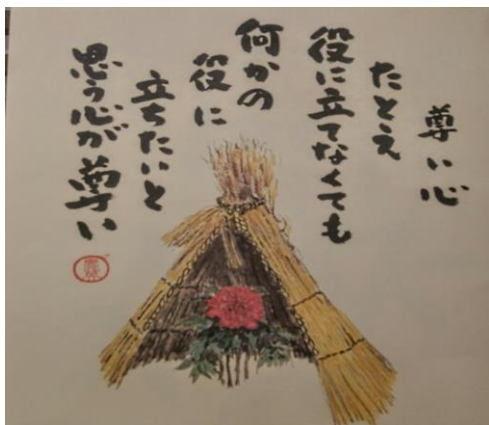 尊い心
たとえ
役に立てなくても
何かの
役に
立ちたいと
思う心が尊い